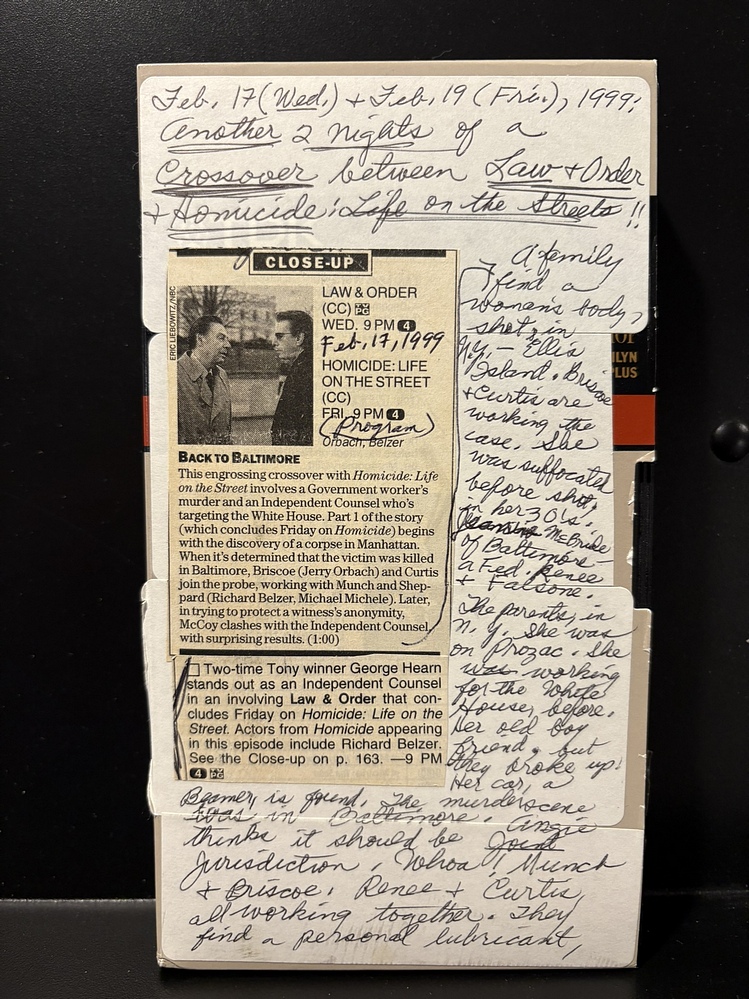 Feb. 17 (Wed.) + Feb. 19 (Fri.), 1999:
Another 2 nights of a
Crossover between Law + Order
+ Homicide: Life on the Streets!!
CLOSE-UP
ERIC LIEBOWITZ/NBC
LAW & ORDER
(CC)
WED. 9 PM 4
Feb. 17, 1999
HOMICIDE: LIFE
ON THE STREET
(CC)
FRI. 9 PM 4
(Program)
Orbach, Belzer
BACK TO BALTIMORE
This engrossing crossover with Homicide: Life
on the Street involves a Government worker's
murder and an Independent Counsel who's
targeting the White House. Part 1 of the story
(which concludes Friday on Homicide) begins
with the discovery of a corpse in Manhattan.
When it's determined that the victim was killed
in Baltimore, Briscoe (Jerry Orbach) and Curtis
join the probe, working with Munch and Shep-
pard (Richard Belzer, Michael Michele). Later,
in trying to protect a witness's anonymity,
McCoy clashes with the Independent Counsel,
with surprising results. (1:00)
Two-time Tony winner George Hearn
stands out as an Independent Counsel
in an involving Law & Order that con-
cludes Friday on Homicide: Life on the
Street. Actors from Homicide appearing
in this episode include Richard Belzer.
See the Close-up on p. 163. —9 PM
4
A family
find a
womens body,
shot, in
N.Y. - Ellis
Island. Briscoe
+ Curtis are
working the
case. She
was suffocated
before shot.
in her 30's.
McBride
of Baltimore -
a Fed. Renee
+ Falsone.
The parents, in
N.Y. She was
on Prozac. She
was working
for the White
House, before.
Her old boy
friend, but
they broke up!
Her car, a
Beamer, is found. The murder scene
was in Baltimore. Angie
thinks it should be Joint
Jurisdiction. Whoa! Munch
+ Briscoe! Renee + Curtis,
all working together. They
find a personal lubricant,
ILYN
PLUS